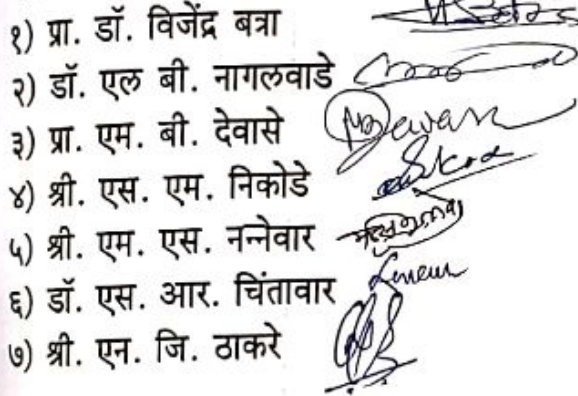 १) प्रा. डॉ. विजेंद्र बत्रा
२) डॉ. एल बी. नागलवाडे
३) प्रा. एम. बी. देवासे
४) श्री. एस. एम. निकोडे
५) श्री. एम. एस. नन्नेवार
६) डॉ. एस. आर. चिंतावार
७) श्री. एन. जि. ठाकरे